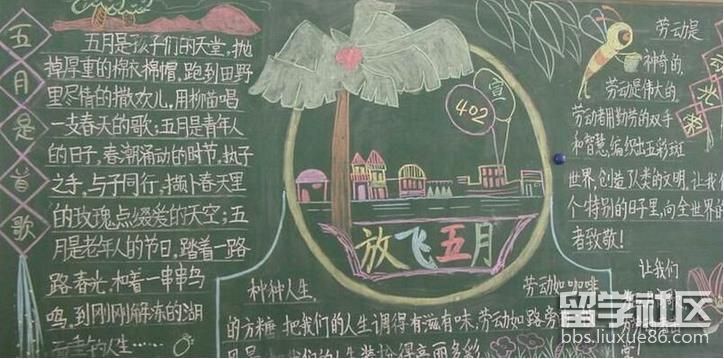 五月是首歌
五月是孩子们的天堂，抛
掉厚重的棉衣棉帽，跑到田野
里尽情的撒欢儿，用柳笛唱
一支春天的歌；五月是青年人
的日子，春潮涌动的时节，执子
之手，与子同行，撷卜春天里
的玫瑰点缀爱的天空；五
月是老年人的节日，踏着一路
路春光，和着一串串鸟
鸣，到刚刚解冻的湖
402
宣
放飞五月
种种人生，
劳动如咖啡
的方糖 把我们的人生调得有滋有味，劳动如路旁
劳动是
神奇的，
劳动是伟大的，
劳动者用勤劳的双手
和智慧，编织出五彩斑
世界，创造了人类的文明，让我们
个特别的日子里，向全世界的
者致敬！
让我们
留学社区
bbs.liuxue86.com